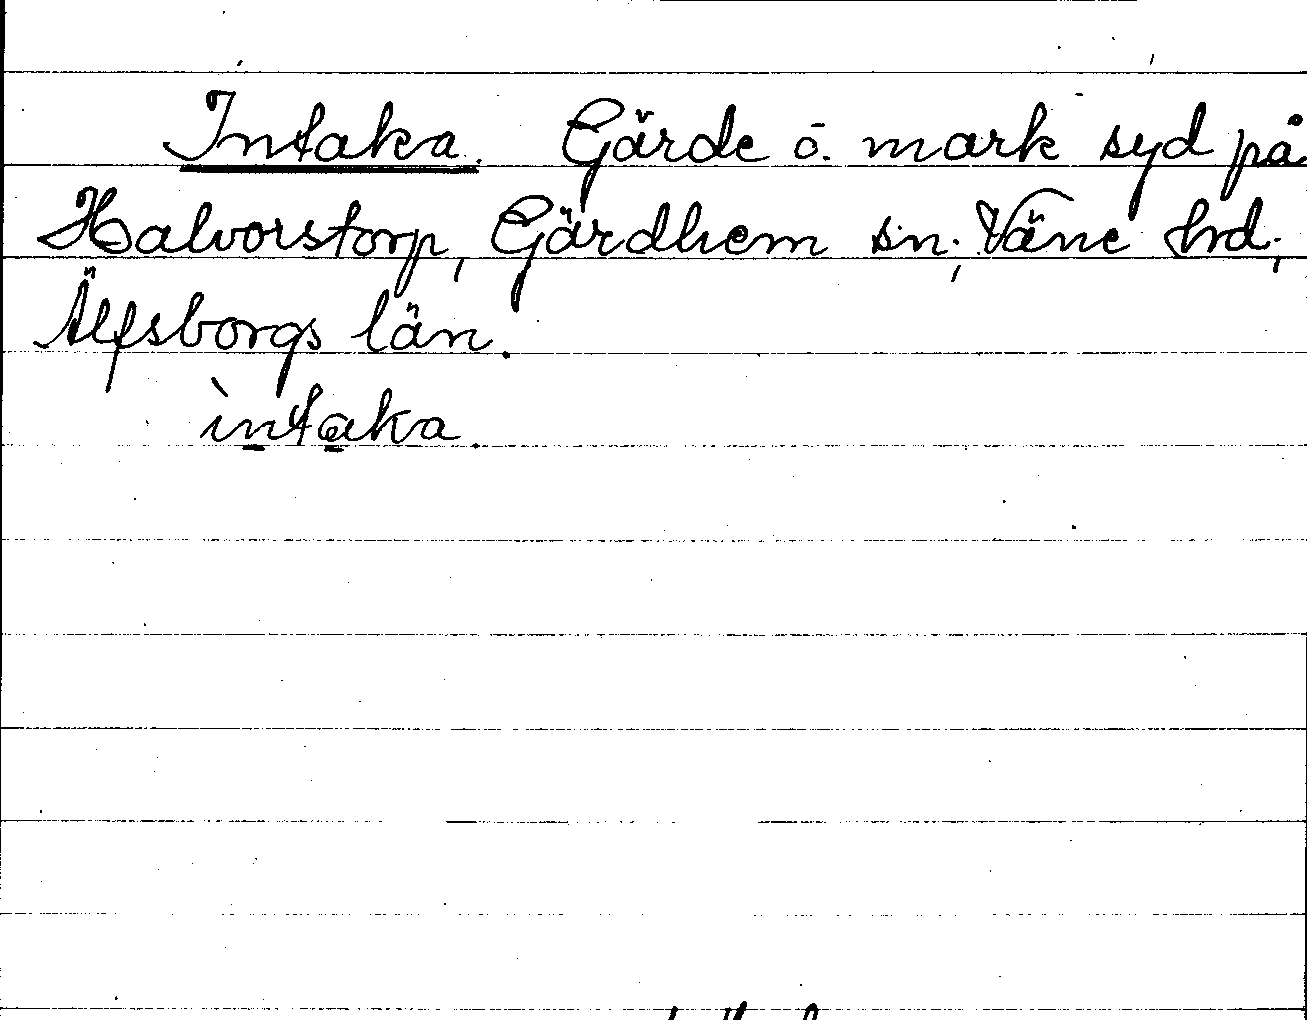 Intaka. Gärde o. mark syd på
Halvorstorp, Gärdhem sn., Väne hrd.,
Älfsborgs län.
ìntaka.